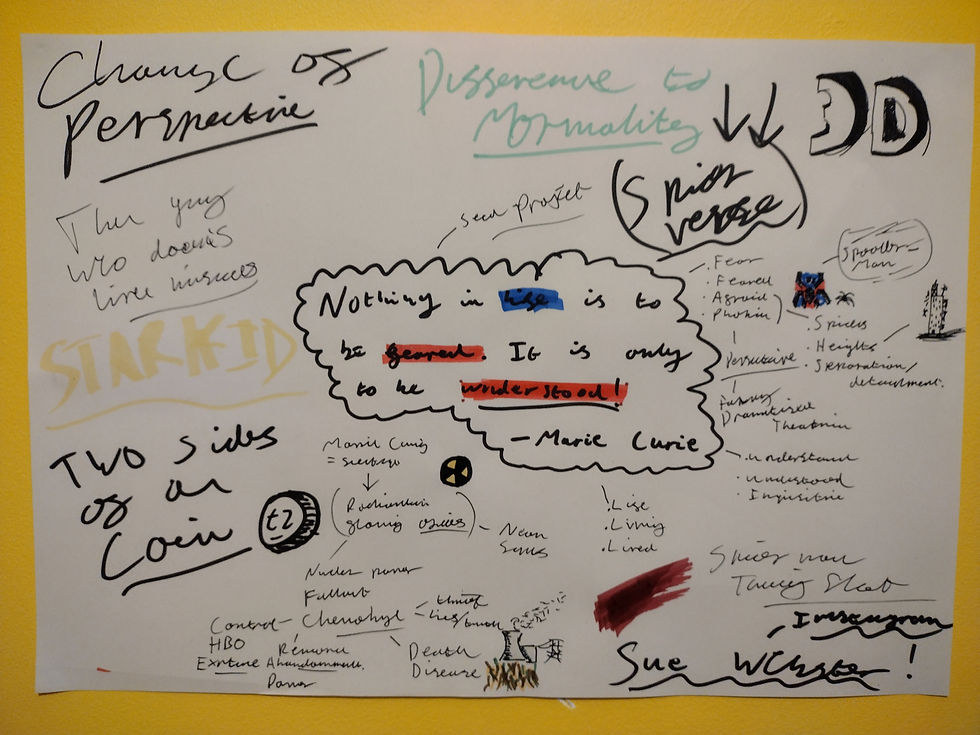 Change of
Perspective
Difference to
Normality
3D
Spider
verse
The guy
who doesn's
like musicals
Seed Project
STARKID
Nothing in life is to
be feared. It is only
to be understood!
- Marie Curie
Spooder-
Man
. Fear
. Feared
. Afraid
. Phobia
. Spiders
. Heights
. Separation/
detachment.
Persuasive
Funny
Dramatised
Theatrical
. understand
. understood
. Inquisitive
Two sides
of a
Coin
£2
Marie Curie
(Radiation
glowing
- Neon
Signs
. Life
. Living
. Lived
Nuclear power
Fallout
Chernobyl
Control
HBO
Removal
Abandonment
Power
Death
Disease
Spider man
Instagram
Sue Webster!